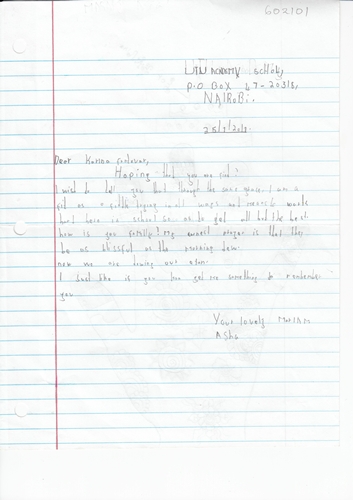 602101
ACADEMY School,
P.O BOX 47-20313,
NAIROBI.
Dear Karina
Hoping that you are fine?
I wish to tell you that through the same grace, I am
as trying in all ways and means
but here in school so as to get all the best.
how is you family? My prayer is that they
be as blissful as the morning dew.
now we are doing our exam.
I just like is you get me something to remember
you
Your lovely MARIAM
Asha